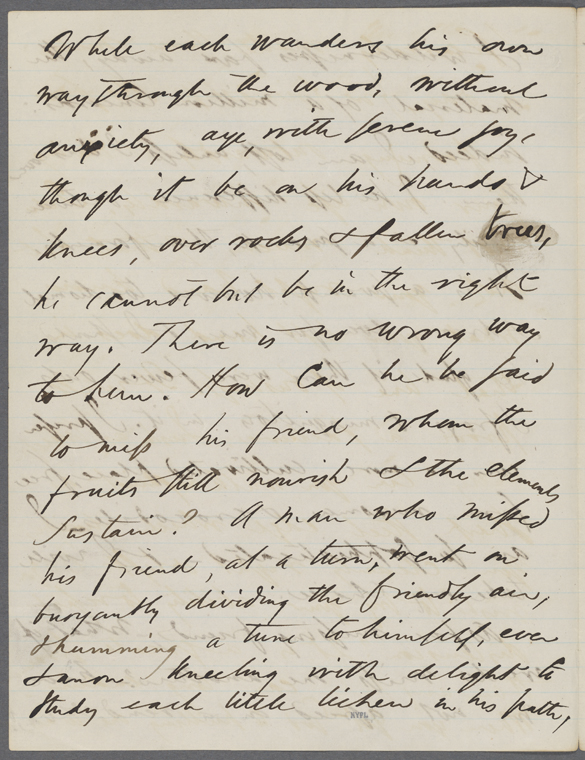 While each wanders his own
way through the wood, without
anxiety, aye, with serene joy,
though it be on his hands &
knees, over rocks & fallen trees,
he cannot but be in the right
way. There is no wrong way
to him. How can he be said
to miss his friend, whom the
fruits still nourish & the elements
sustain? A man who missed
his friend, at a turn, went on
buoyantly dividing the friendly air,
& humming a tune to himself, ever
& anon kneeling with delight to
study each little lichen in his path,
NYPL